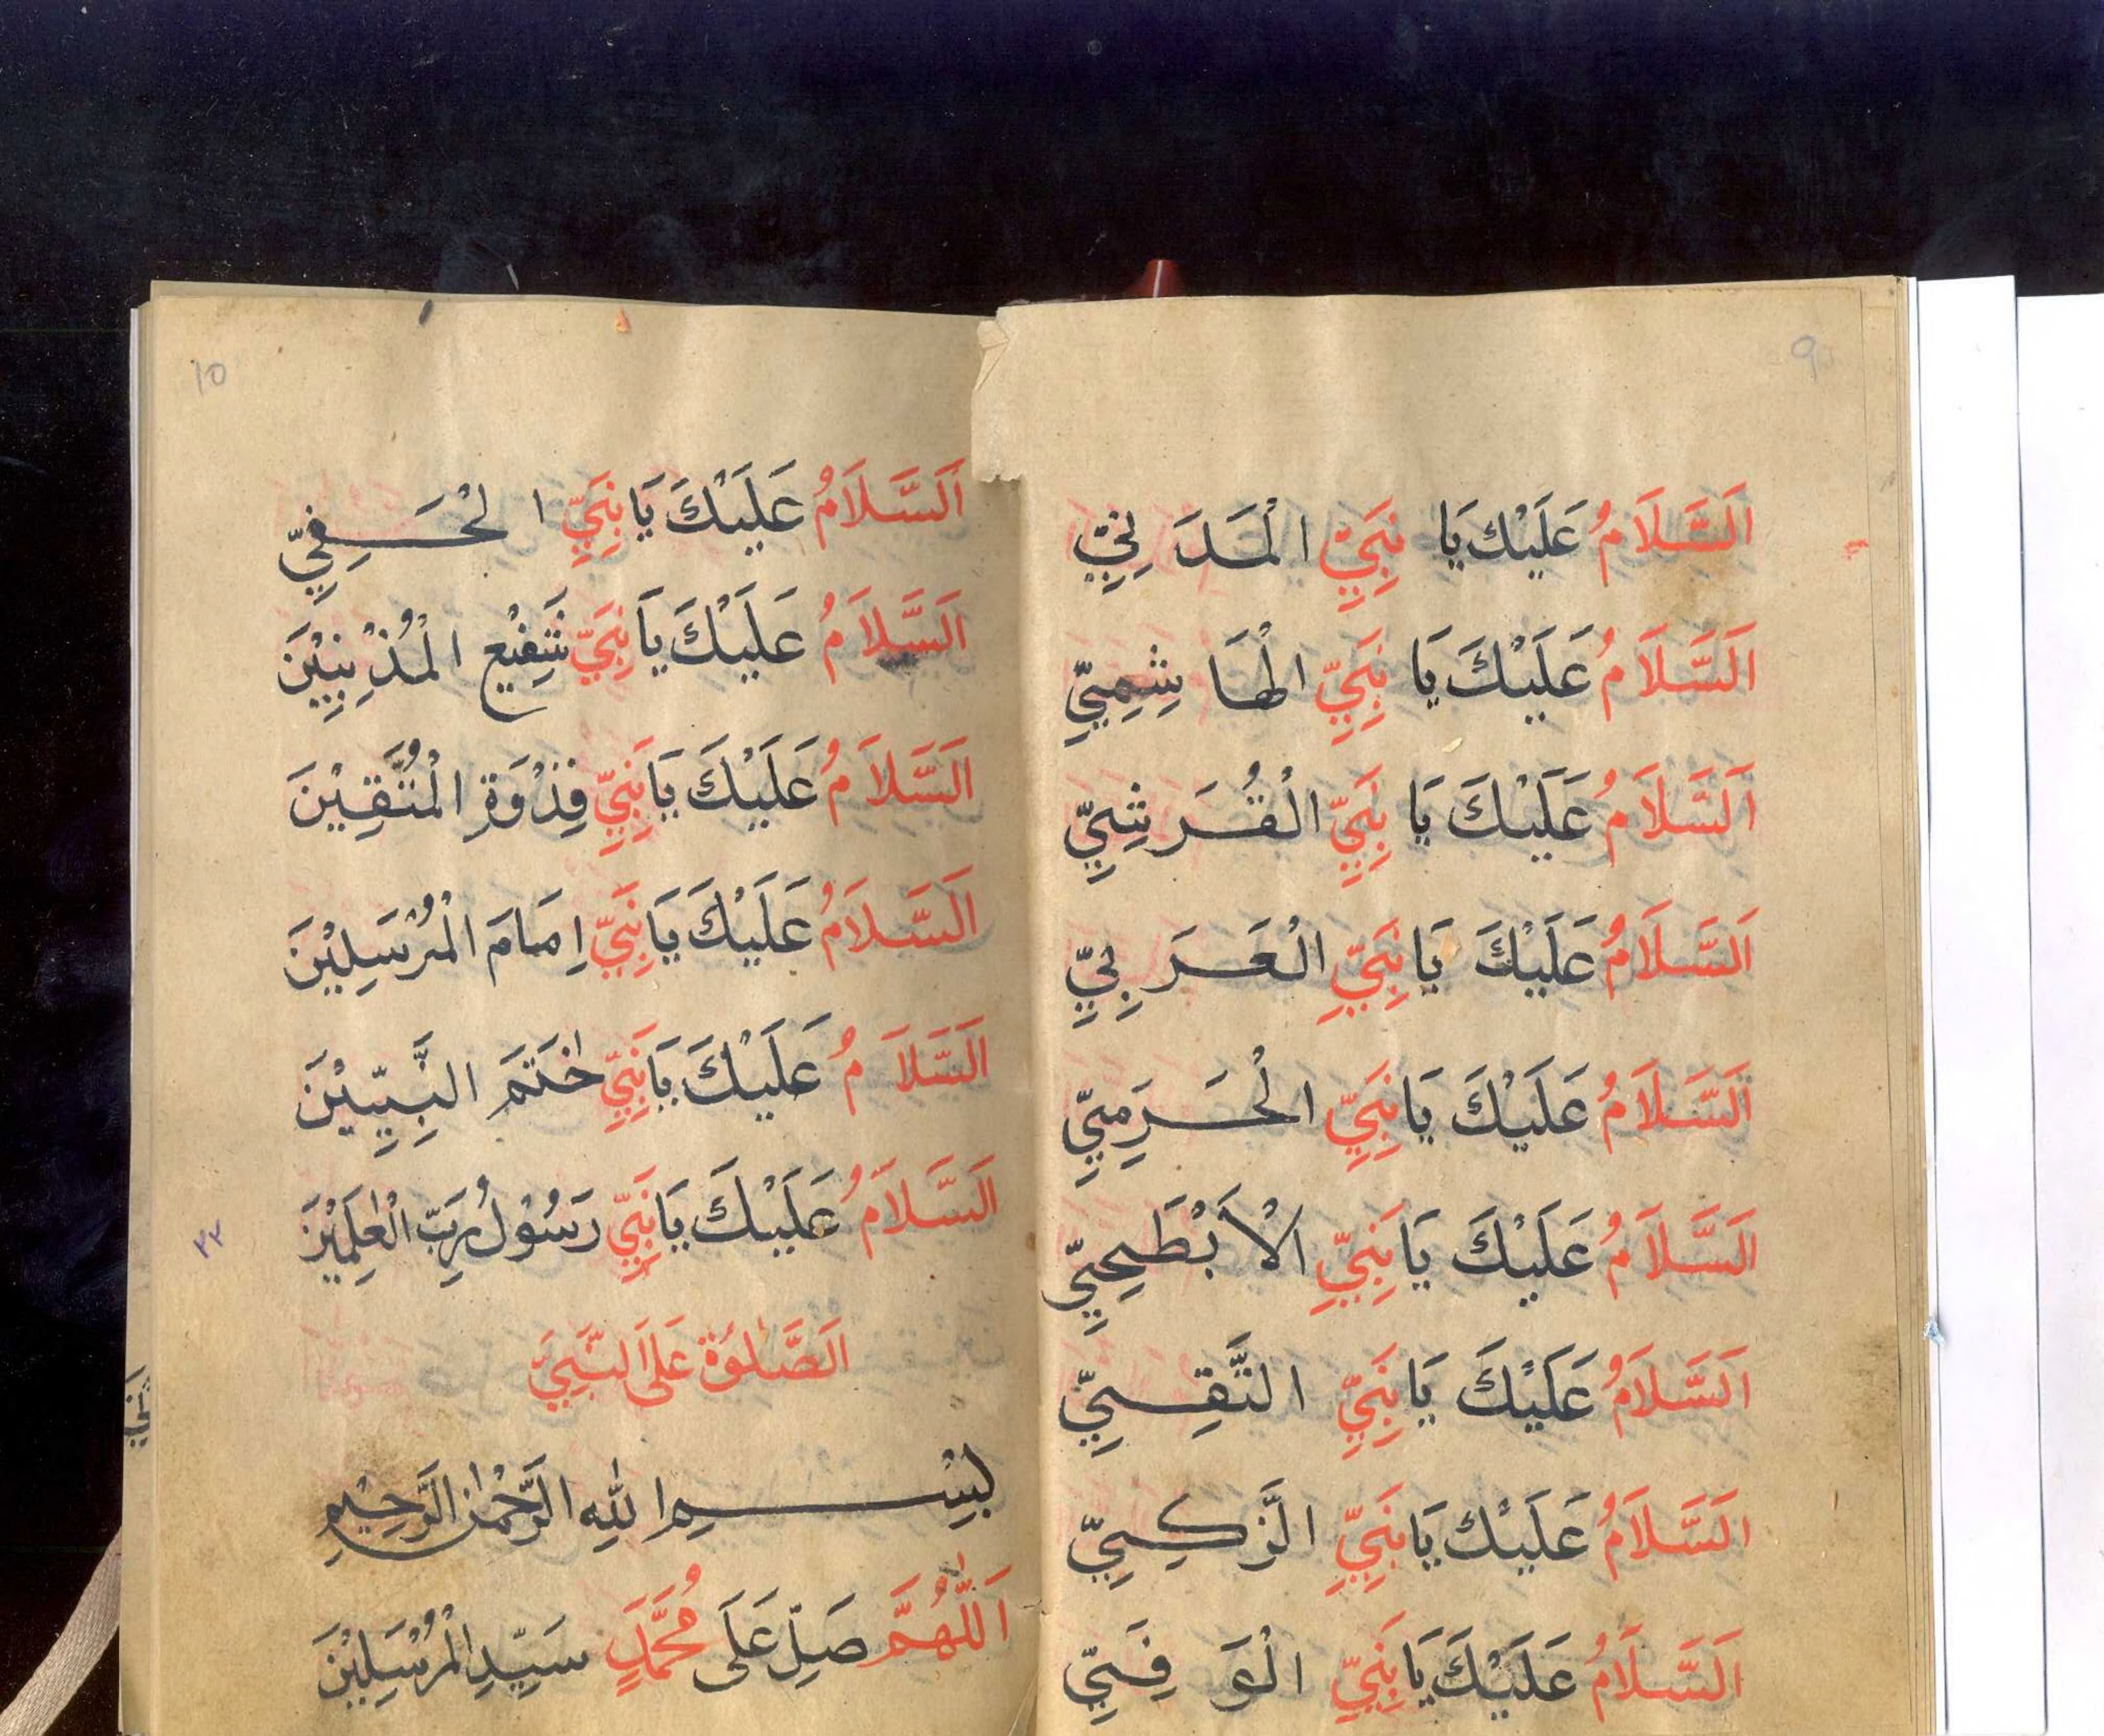 9
اَلسَّلَامُ عَلَيْكَ يَا نَبِيِّ الْمَدَنِيِّ
اَلسَّلَامُ عَلَيْكَ يَا نَبِيِّ الْهَاشِمِيِّ
اَلسَّلَامُ عَلَيْكَ يَا نَبِيِّ الْقُرَشِيِّ
اَلسَّلَامُ عَلَيْكَ يَا نَبِيِّ الْعَرَبِيِّ
اَلسَّلَامُ عَلَيْكَ يَا نَبِيِّ الْحَرَمِيِّ
اَلسَّلَامُ عَلَيْكَ يَا نَبِيِّ الْاَبْطَحِيِّ
اَلسَّلَامُ عَلَيْكَ يَا نَبِيِّ التَّقِيِّ
اَلسَّلَامُ عَلَيْكَ يَا نَبِيِّ الزَّكِيِّ
اَلسَّلَامُ عَلَيْكَ يَا نَبِيِّ الْوَفِيِّ
10
اَلسَّلَامُ عَلَيْكَ يَا نَبِيِّ الْحَفِيِّ
اَلسَّلَامُ عَلَيْكَ يَا نَبِيِّ شَفِيْعِ الْمُذْنِبِيْنَ
اَلسَّلَامُ عَلَيْكَ يَا نَبِيِّ قِذْوَةِ الْمُتَّقِيْنَ
اَلسَّلَامُ عَلَيْكَ يَا نَبِيِّ اِمَامَ الْمُرْسَلِيْنَ
اَلسَّلَامُ عَلَيْكَ يَا نَبِيِّ خٰتَمَ النَّبِيِّيْنَ
اَلسَّلَامُ عَلَيْكَ يَا نَبِيِّ رَسُوْلُ رَبِّ الْعٰلَمِيْنَ
٢٢
اَلصَّلٰوةُ عَلَى النَّبِيِّ
بِسْمِ اللّٰهِ الرَّحْمٰنِ الرَّحِيْمِ
اَللّٰهُمَّ صَلِّ عَلَى مُحَمَّدٍ سَيِّدِ الْمُرْسَلِيْنَ